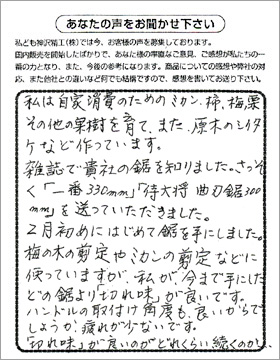 あなたの声をお聞かせ下さい
私ども神沢精工(株)では今、お客様の声を募集しております。
国内販売を開始したばかりで、あなた様の率直なご意見、ご感想が私たちの一
番の力となり、また、今後の参考になります。商品についての感想や弊社の対
応、また他社との違いなど何でも結構ですので、感想を書いてお送り下さい。
私は自家消費のためのミカン、柿、梅果
その他の果樹を育て、また、原木のシイタ
ケなど作っています。
雑誌で貴社の鋸を知りました。さっそ
く「一番330mm」「侍大将 曲刃鋸300
mm」を送っていただきました。
2月初めにはじめて鋸を手にしました。
梅の木の剪定やミカンの剪定などに
使っていますが、私が、今まで手にした
どの鋸より「切れ味」が良いです。
ハンドルの取付け角度も、良いからで
しょうか、疲れが少ないです。
「切れ味」が良いのがどれくらい続くのか、